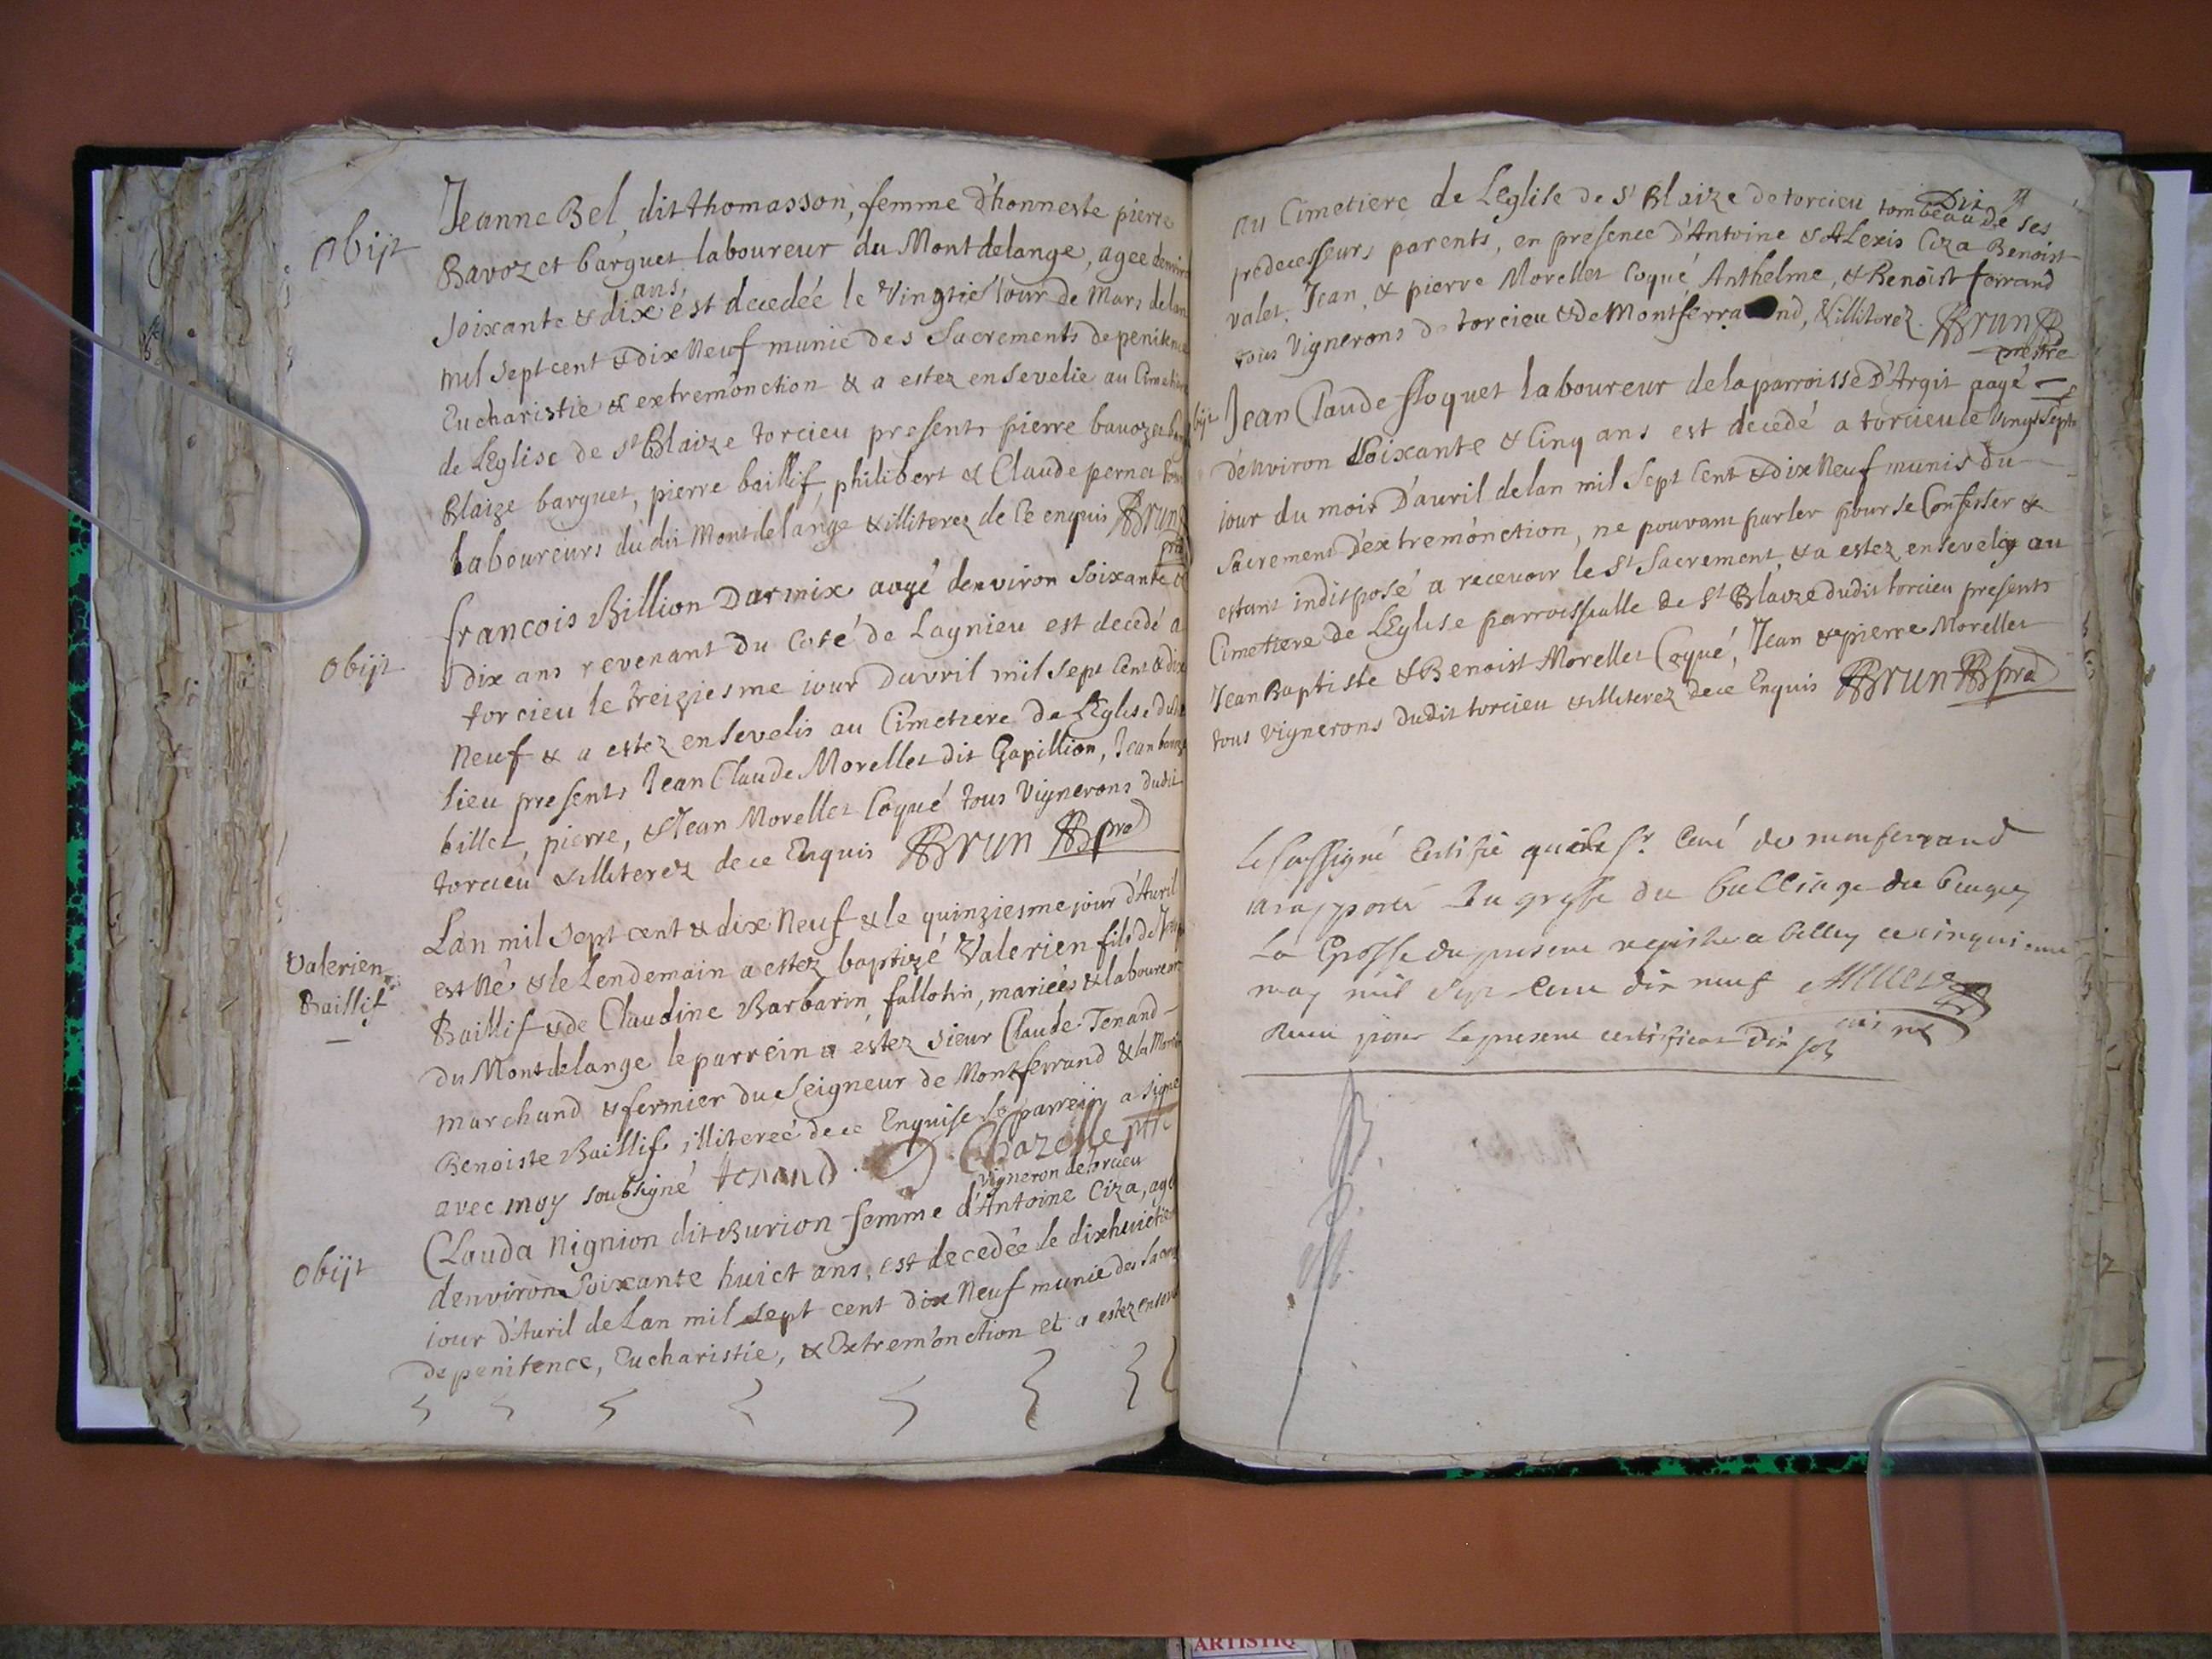 Obijt
Jeanne Bel, dit thomasson, femme d'honneste pierre
Bavozet barquet laboureur du Montdelange, agee denviro
ans,
soixante & dix est decedée le Vingtie Jour de Mars de lan
mil sept cent & dix Neuf munie des Sacrements de peniten
Eucharistie & extremonction & a estez ensevelie au Cimeti
de LEglise de st Blaize torcieu presents pierre bavozet
Blaize barquet, pierre baillif, philibert & Claude pernet
laboureurs dudit Montdelange & illiterez de Ce enquis Brun
Obijt
francois Billion Darmix aagé denviron soixante &
dix ans revenant du Coté de Lagnieu est decedé a
torcieu le treiziesme iour Davril mil sept Cent & dix
Neuf & a estez ensevelis au Cimetiere de LEglise du
lieu presents Jean Claude Morellet dit Papillion, Jean
billet, pierre, & Jean Morellet Coqué tous Vignerons dudit
torcieu & illiterez de ce Enquis Brun
Valerien
Baillif
Lan mil sept cent & dix Neuf & le quinziesme jour d'Avril
est Né & le Lendemain a estez baptizé Valerien fils de
Baillif & de Claudine Barbarin, fallotin, mariées & laboureur
du Montdelange le parrein a estez sieur Claude Tenand
marchand & fermier du Seigneur de Montferrand & la
Benoiste Baillif illiterée de ce Enquise le parrein a signé
avec moy soubsigné tenand Chazelle ptre
vigneron de torcieu
Obijt
Clauda Nignion dit Burion femme d'Antoine Ciza, agé
denviron Soixante huict ans, est decedée le dixhuictie
iour d'Avril de Lan mil sept cent dix Neuf munie des
de penitence, Eucharistie, & Extremonction et a estez
Dix
au Cimetiere de LEglise de st Blaize de torcieu tombeau de ses
predecesseurs parents, en presence d'Antoine & ALexis Ciza Benoist
valet, Jean, & pierre Morellet Coqué Anthelme, & Benoist ferrand
tous Vignerons de torcieu & de Montferrand, & illiterez. Brun
prestre
Jean Claude floquet laboureur de la parroisse D'Argit aagé
denviron soixante & Cinq ans est decedé a torcieu le Vingt Sept
iour du mois D'avril de lan mil Sept Cent & dix Neuf munis du
Sacrement d'extremonction, ne pouvant parler pour se Confesser &
estant indisposé a recevoir le st Sacrement, & a estez ensevely au
Cimetiere de LEglise parroissialle de st Blaize dudit torcieu presents
Jean Baptiste & Benoist Morellet Coqué, Jean & pierre Morellet
tous vignerons dudit torcieu & illiterez de ce Enquis Brun
Le soussigné Certifie que le sr. Curé de monferrand
a rapporté Au greffe du balliage du bugey
La Grosse du present registre a belley ce cinquieme
may mil sept Cent dix neuf
Receu pour le present certificat Dix sols